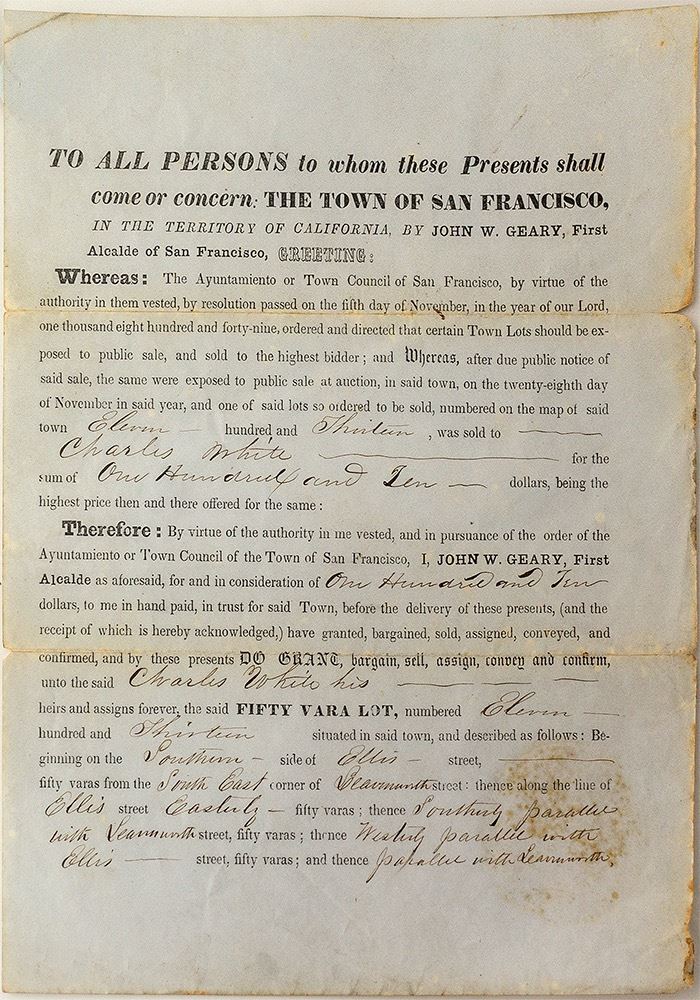 TO ALL PERSONS to whom these Presents shall
come or concern: THE TOWN OF SAN FRANCISCO,
IN THE TERRITORY OF CALIFORNIA, BY JOHN W. GEARY, First
Alcalde of San Francisco, GREETING:
Whereas: The Ayuntamiento or Town Council of San Francisco, by virtue of the
authority in them vested, by resolution passed on the fifth day of November, in the year of our Lord,
one thousand eight hundred and forty-nine, ordered and directed that certain Town Lots should be ex-
posed to public sale, and sold to the highest bidder; and Whereas, after due public notice of
said sale, the same were exposed to public sale at auction, in said town, on the twenty-eighth day
of November in said year, and one of said lots so ordered to be sold, numbered on the map of said
town Eleven — hundred and Thirteen, was sold to —
Charles White — for the
sum of One Hundred and Ten — dollars, being the
highest price then and there offered for the same:
Therefore: By virtue of the authority in me vested, and in pursuance of the order of the
Ayuntamiento or Town Council of the Town of San Francisco, I, JOHN W. GEARY, First
Alcalde as aforesaid, for and in consideration of One Hundred and Ten
dollars, to me in hand paid, in trust for said Town, before the delivery of these presents, (and the
receipt of which is hereby acknowledged,) have granted, bargained, sold, assigned, conveyed, and
confirmed, and by these presents DO GRANT, bargain, sell, assign, convey and confirm,
unto the said Charles White his — —
heirs and assigns forever, the said FIFTY VARA LOT, numbered Eleven —
hundred and Thirteen situated in said town, and described as follows: Be-
ginning on the Southern — side of Ellis — street, —
fifty varas from the South East corner of Leavenworth street: thence along the line of
Ellis street Easterly — fifty varas; thence Southerly parallel
with Leavenworth street, fifty varas; thence Westerly parallel with
Ellis — street, fifty varas; and thence parallel with Leavenworth,